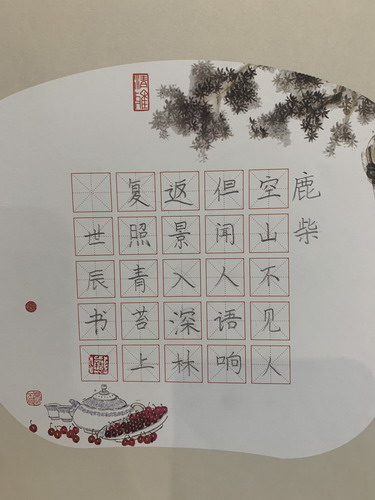 鹿柴
空山不见人
但闻人语响
返景入深林
复照青苔上
世辰书